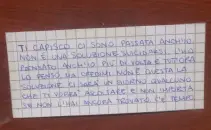 TI CAPISCO. CI SONO PASSATA ANCH'IO.
NON È UNA SOLUZIONE SUICIDARSI. L'HO
PENSATO ANCH'IO PIÙ DI VOLTA E TUTTORA
LO PENSO, MA CREDIMI NON È QUESTA LA
SOLUZIONE. CI SARÀ UN GIORNO QUALCUNO
CHE TI SAPRÀ ASCOLTARE E NON IMPORTA
SE NON L'HAI ANCORA TROVATO. C'È TEMPO